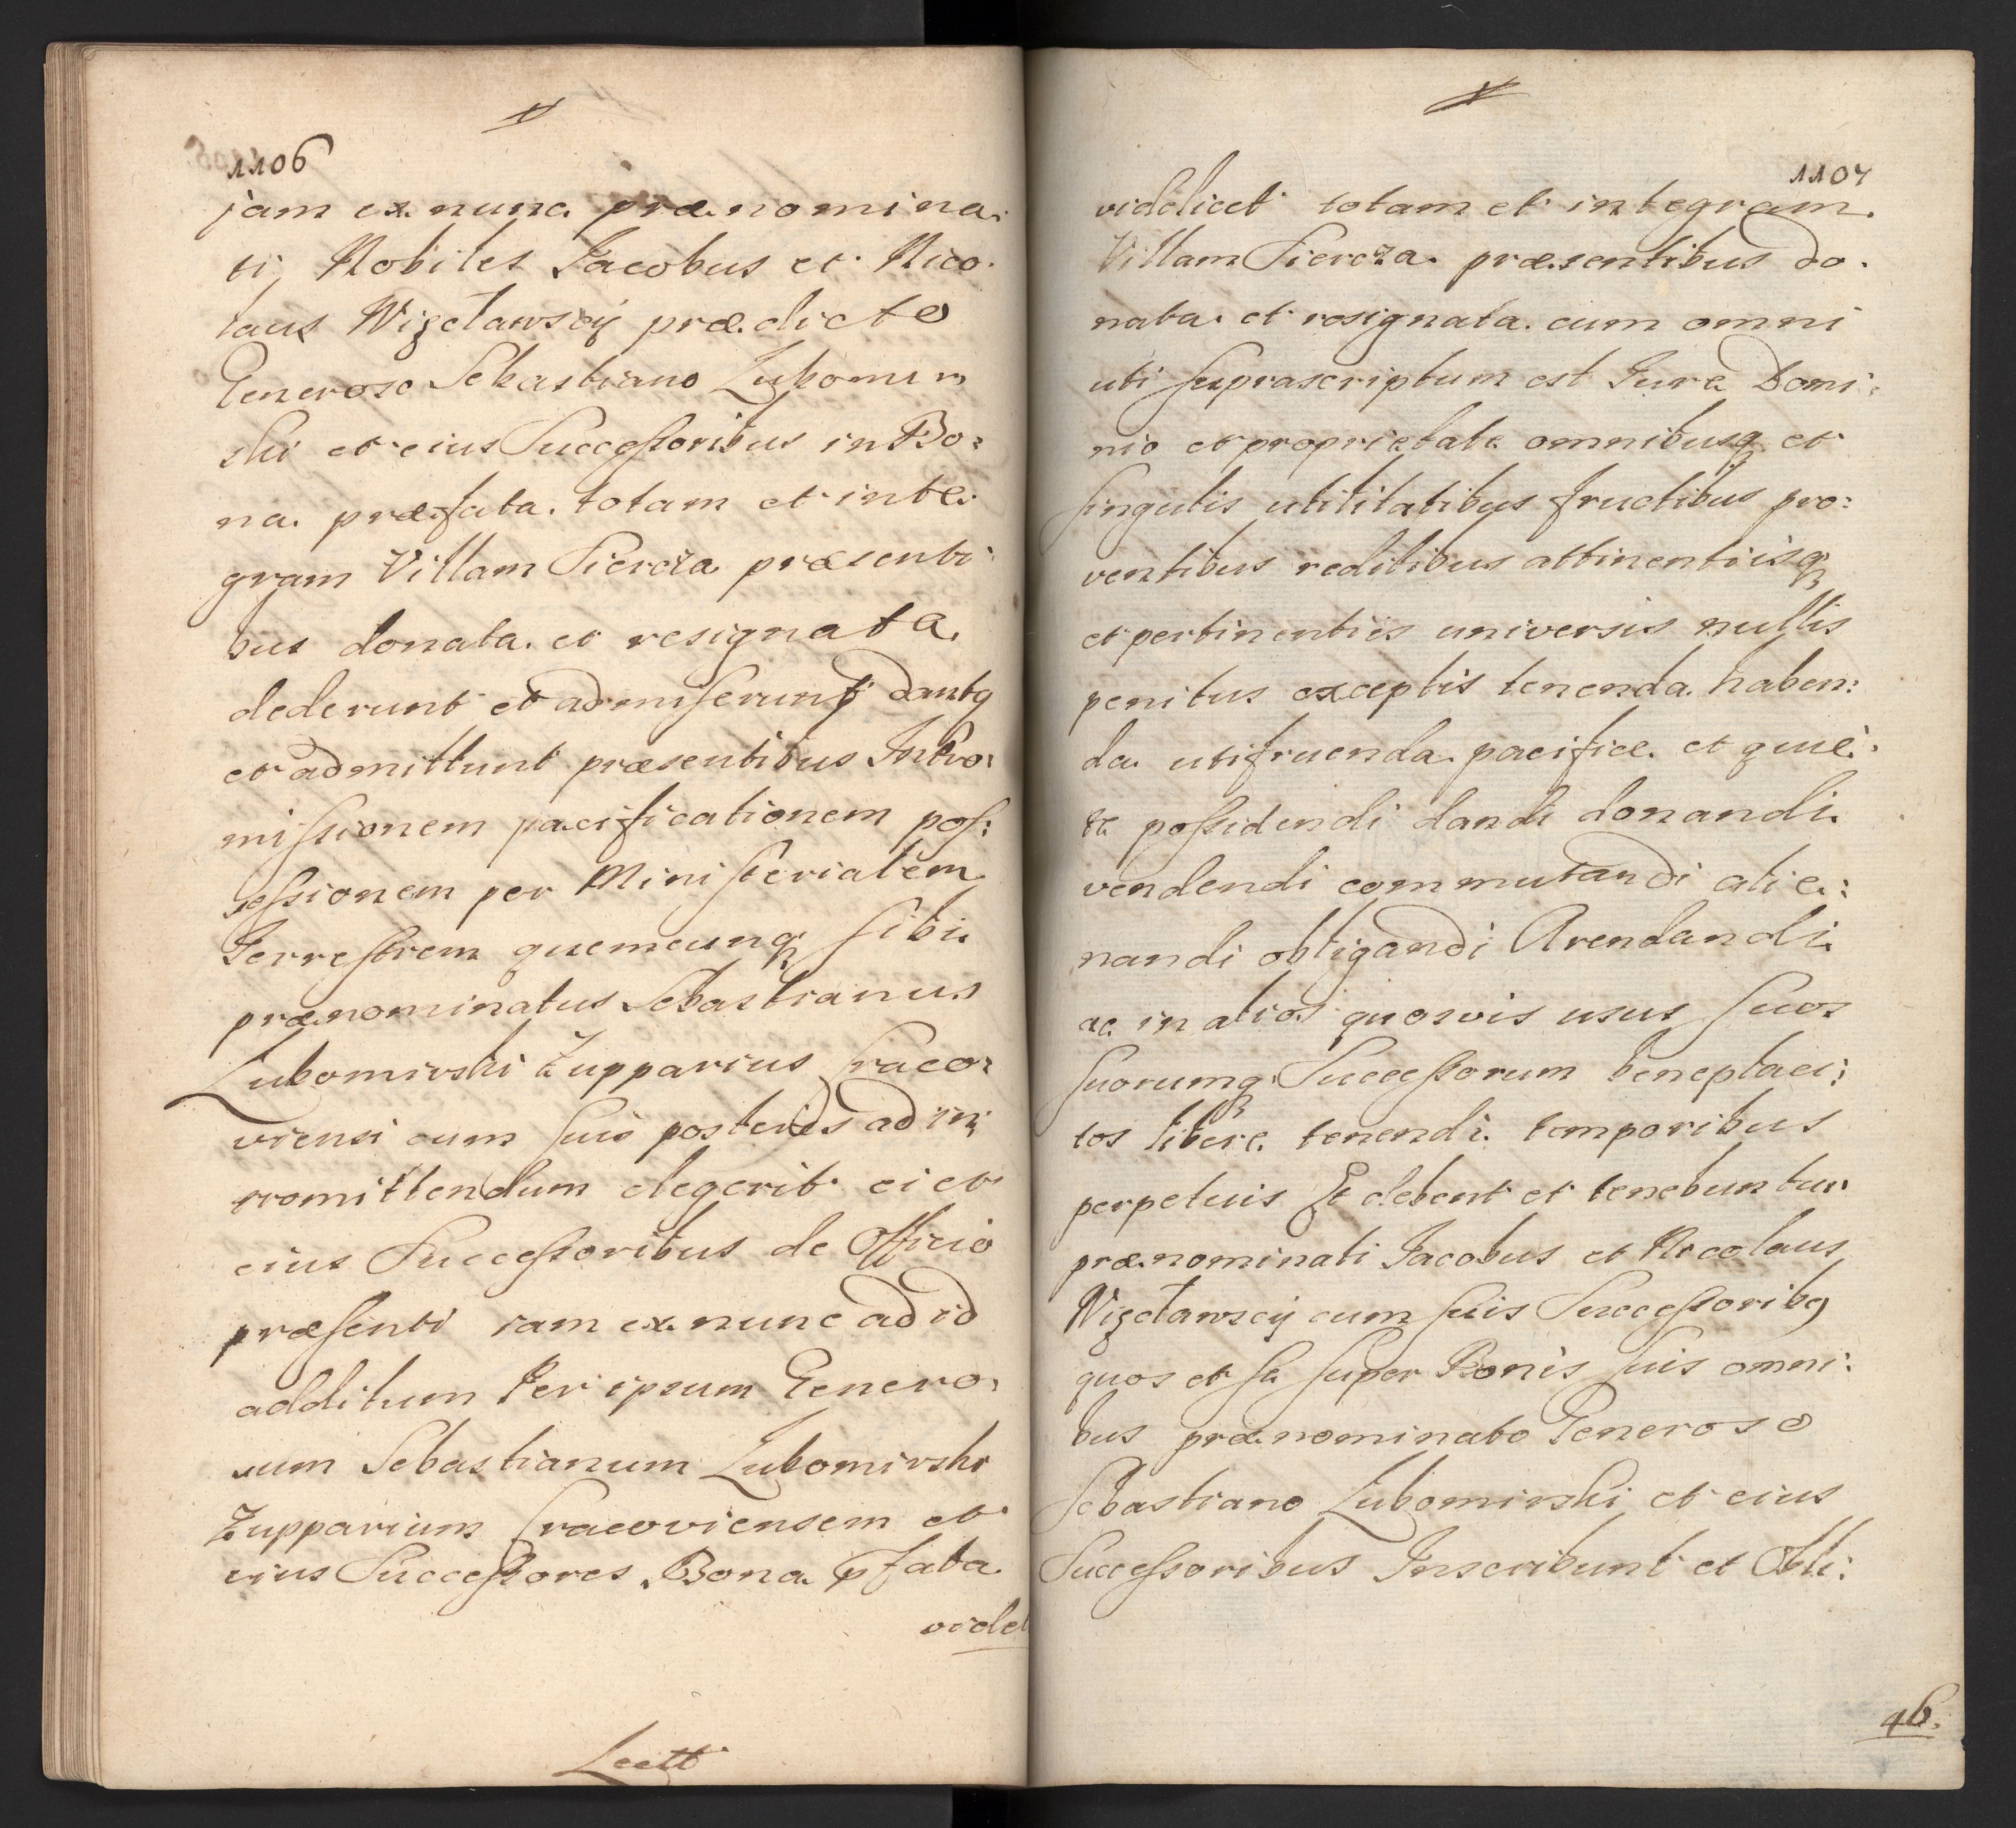 1106
jam ex nunc prænomina:
ti, Nobiles Jacobus et Nico:
laus Wizełławscÿ prædicto
Generoso Sebastiano Lubomir
ski et eius Successoribus in Bo:
na præfata totam et inte:
gram Villam Siercza præsenti:
bus donata et resignata
dederunt et admiserunt dantq
et admittunt præsentibus Intro:
missionem pacificationem pos:
sessionem per Ministerialem
Terrestrem quemcunq sibi
prænominatus Sebastianus
Lubomirski Zupparius Craco:
viensi cum suis posteris ad in
tromittendum elegerit ei et
eius Successoribus de Officio
præsenti iam ex nunc ad id
additum Per ipsum Genero:
sum Sebastianum Lubomirski
Zupparium Cracoviensem et
eius Successores Bona pfata
videl
Lectt
1107
videlicet totam et integram
Villam Siercza præsentibus do:
nata et resignata cum omni
uti suprascriptum est Jure Domi:
nio et proprietate omnibusq et
singulis utilitatibus fructibus pro:
ventibus reditibus attinentiisq
et pertinentiis universis nullis
penitus exceptis tenenda haben:
da utifruenda pacifice et quie:
te possidendi dandi donandi
vendendi commutandi alie:
nandi obligandi Arendandi
ac in alios quosvis usus suos
suorumq Successorum beneplaci:
tos libere tenendi temporibus
perpetuis Et debent et tenebuntur
prænominati Jacobus et Nicolaus
Wizełławscÿ cum suis Successoribq
quos et se super Bonis suis omni:
bus prænominato Generoso
Sebastiano Lubomirski et eius
Successoribus Inscribunt et Obli:
46.